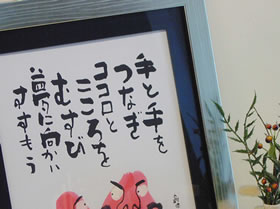 手と手を
つなぎ
ココロと
こころを
むすび
夢に向かい
すすもう